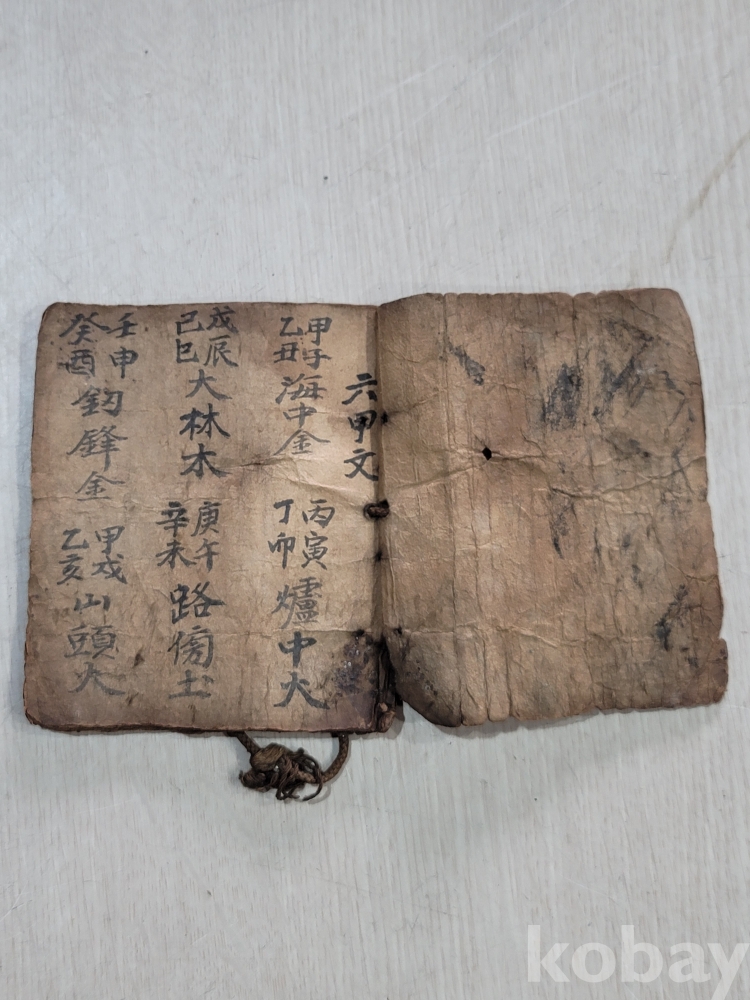 六甲文
甲子
乙丑
海中金
丙寅
丁卯
爐中火
戊辰
己巳
大林木
庚午
辛未
路傍土
壬申
癸酉
釰鋒金
甲戌
乙亥
山頭火
kobay